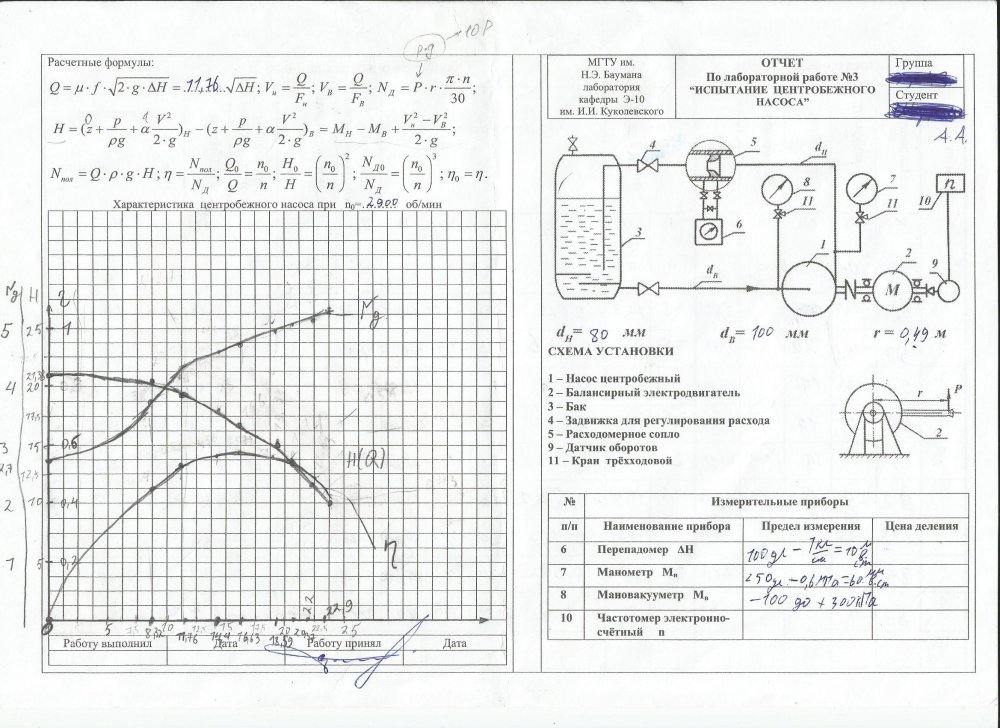 p·g → 10P
Расчетные формулы:
Q = μ · f · √2·g·ΔH = 11,76 √ΔH ; Vн = Q/Fн ; VВ = Q/FВ ; NД = P · r · π·n/30 ;
H = (z + p/ρg + α V²/2·g)Н − (z + p/ρg + α V²/2·g)В = MН − MВ + (Vн² − VВ²)/2·g ;
Nпол = Q · ρ · g · H ; η = Nпол/NД ; Q0/Q = n0/n ; H0/H = (n0/n)² ; NД0/NД = (n0/n)³ ; η0 = η .
Характеристика центробежного насоса при n0= 2900 об/мин
Ng H η
5 25 1
Ng
4 20
17,5
3 15 0,6
12,5
H(Q)
2 10 0,4
1 5 0,2
η
0 5 7,5 10 11,76 12,5 14,4 20 22,9 25
Работу выполнил Дата Работу принял Дата
МГТУ им.
Н.Э. Баумана
лаборатория
кафедры Э-10
им. И.И. Куколевского
ОТЧЕТ
По лабораторной работе №3
“ИСПЫТАНИЕ ЦЕНТРОБЕЖНОГО
НАСОСА”
Группа
Студент
А.А.
4 5 dН 8 7 n
11 11 10
6
3 1 2 9
dВ M
dН= 80 мм dВ= 100 мм r = 0,49 м
СХЕМА УСТАНОВКИ
1 – Насос центробежный
2 – Балансирный электродвигатель
3 – Бак
4 – Задвижка для регулирования расхода
5 – Расходомерное сопло
9 – Датчик оборотов
11 – Кран трёхходовой
r P
2
№ Измерительные приборы
п/п Наименование прибора Предел измерения Цена деления
6 Перепадомер ΔH 100 дел –
7 Манометр Mн 250 дел. – 0,6 МПа = 60 м в.ст
8 Мановакууметр Mв −100 до +300 кПа
10 Частотомер электронно-
счётный n